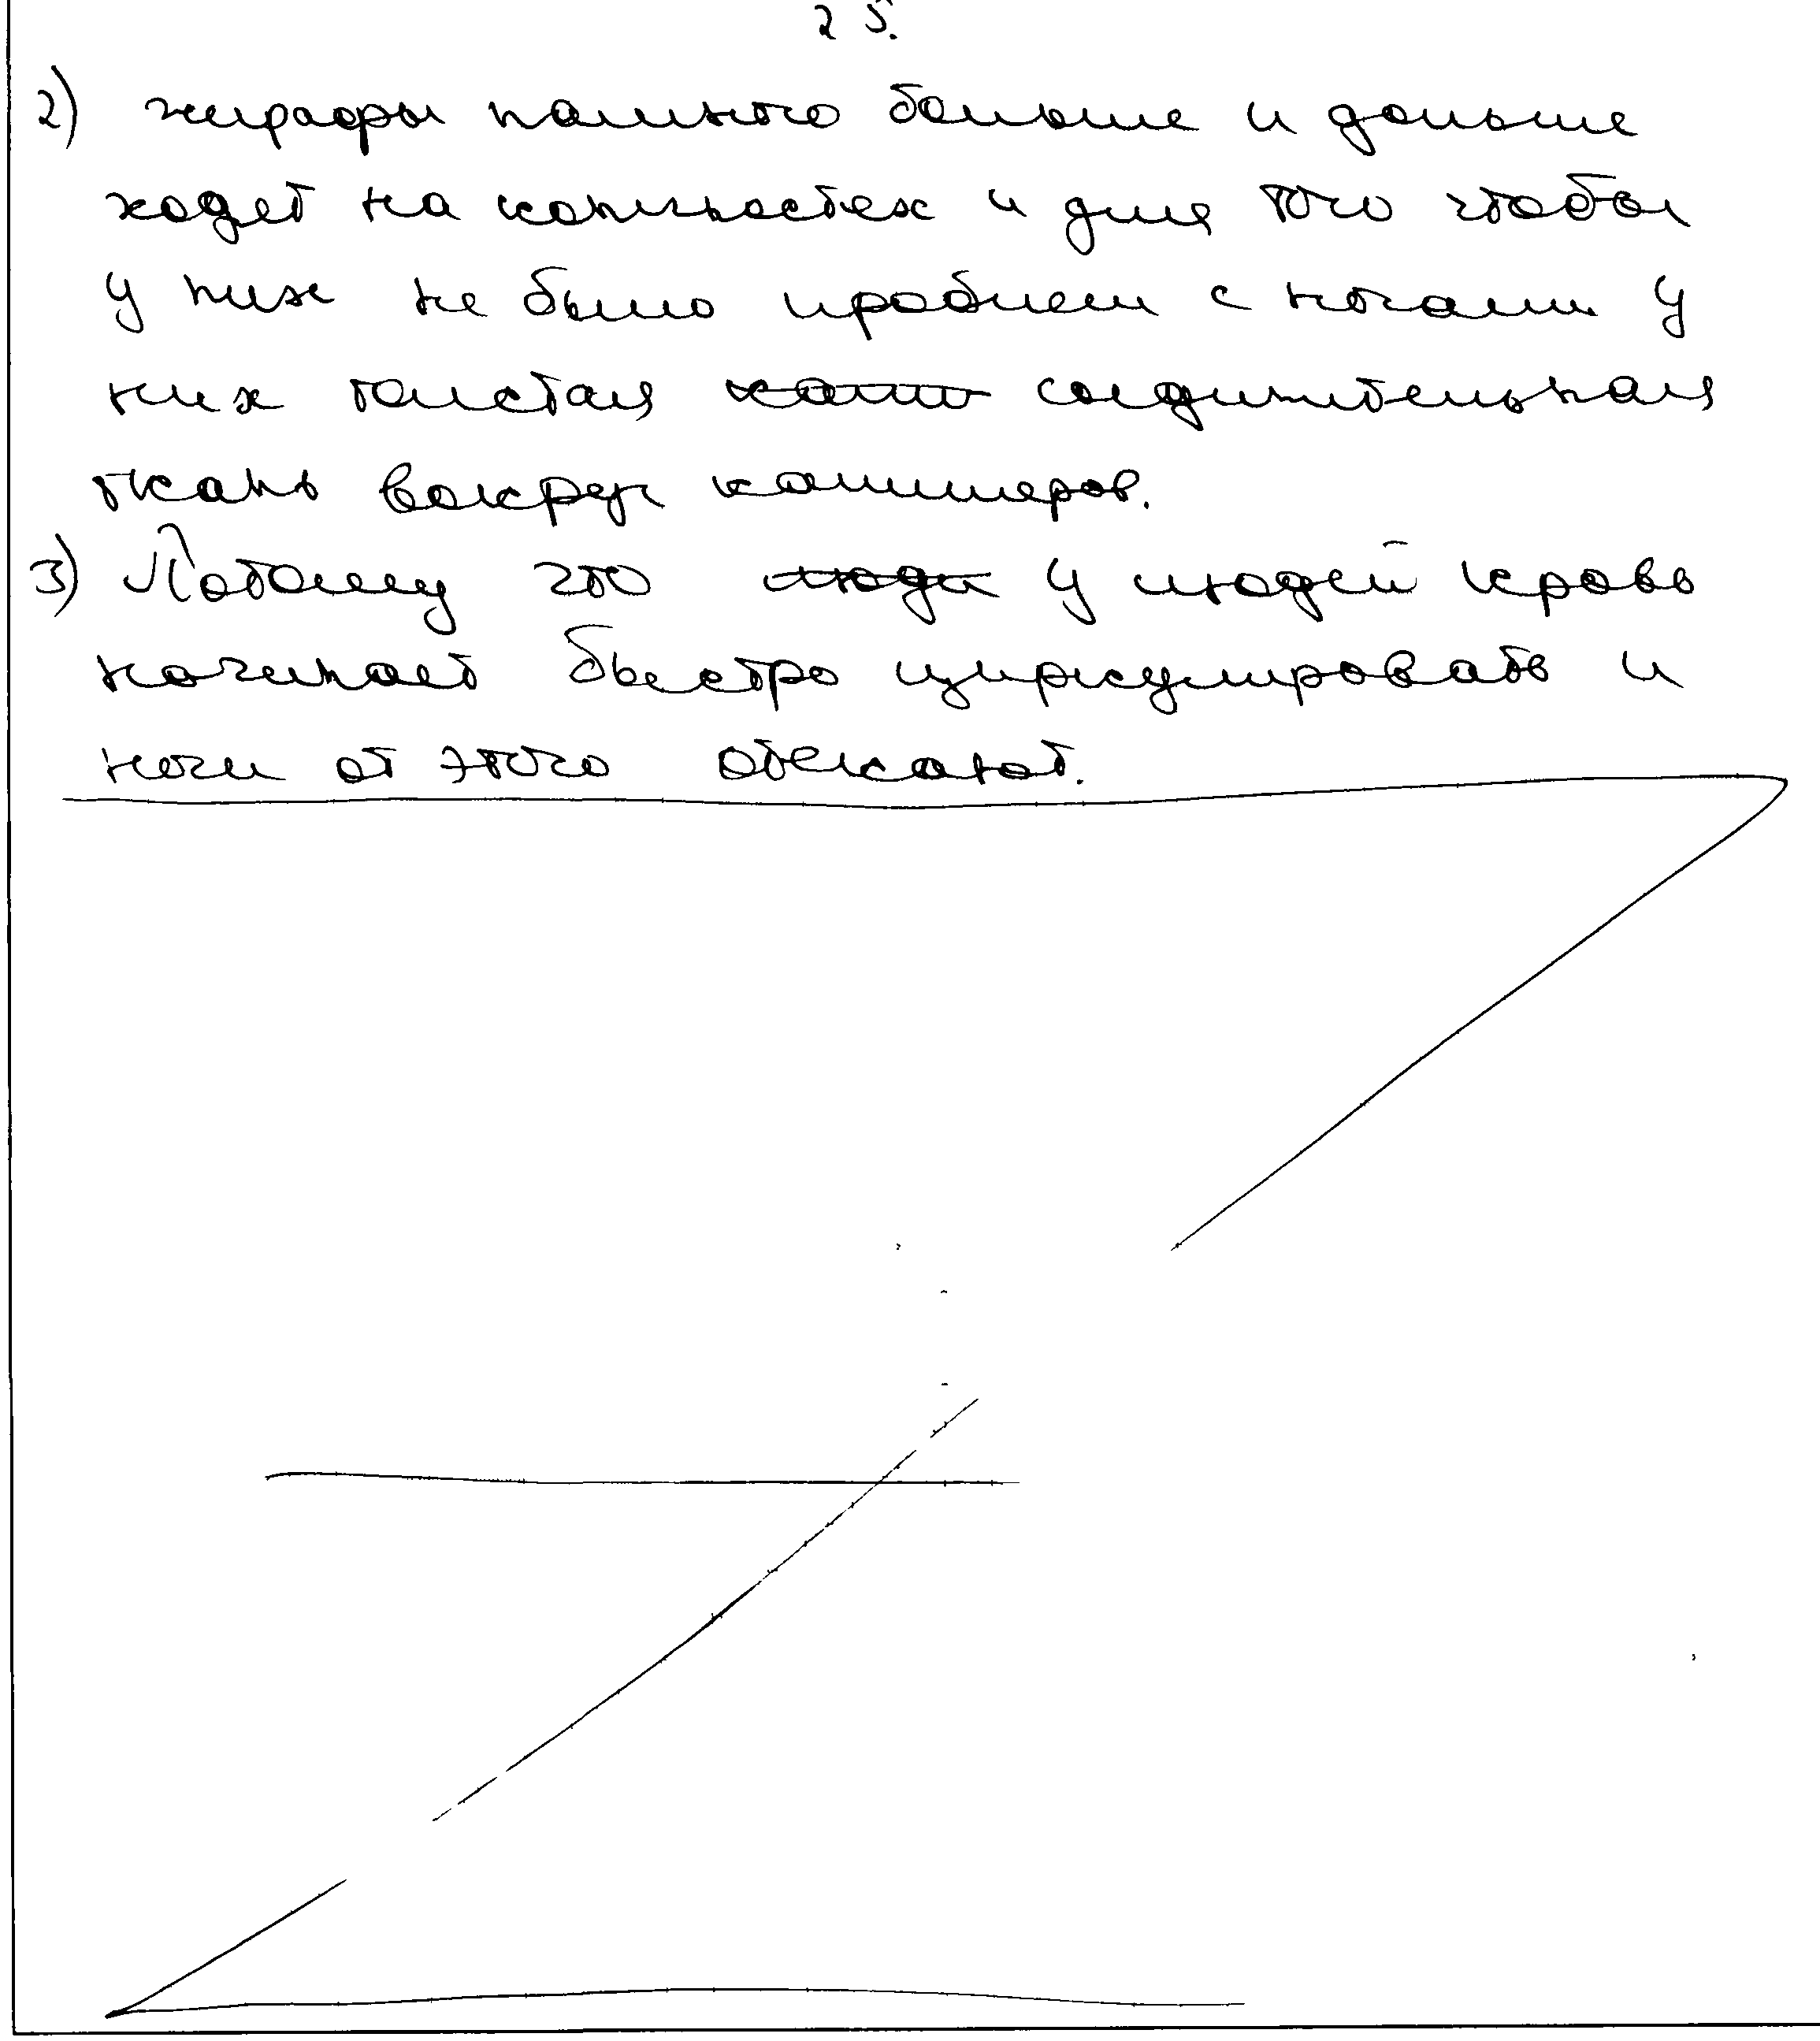 25.
2) жирафы намного больше и дольше
ходет на конечностех и для того чтобы
у них не было проблем с ногами у
них толстая соединительная
ткань вокруг капиляров.
3) Потому что люди у людей кровь
начинает быстро циркулировать и
ноги от этого отекают.